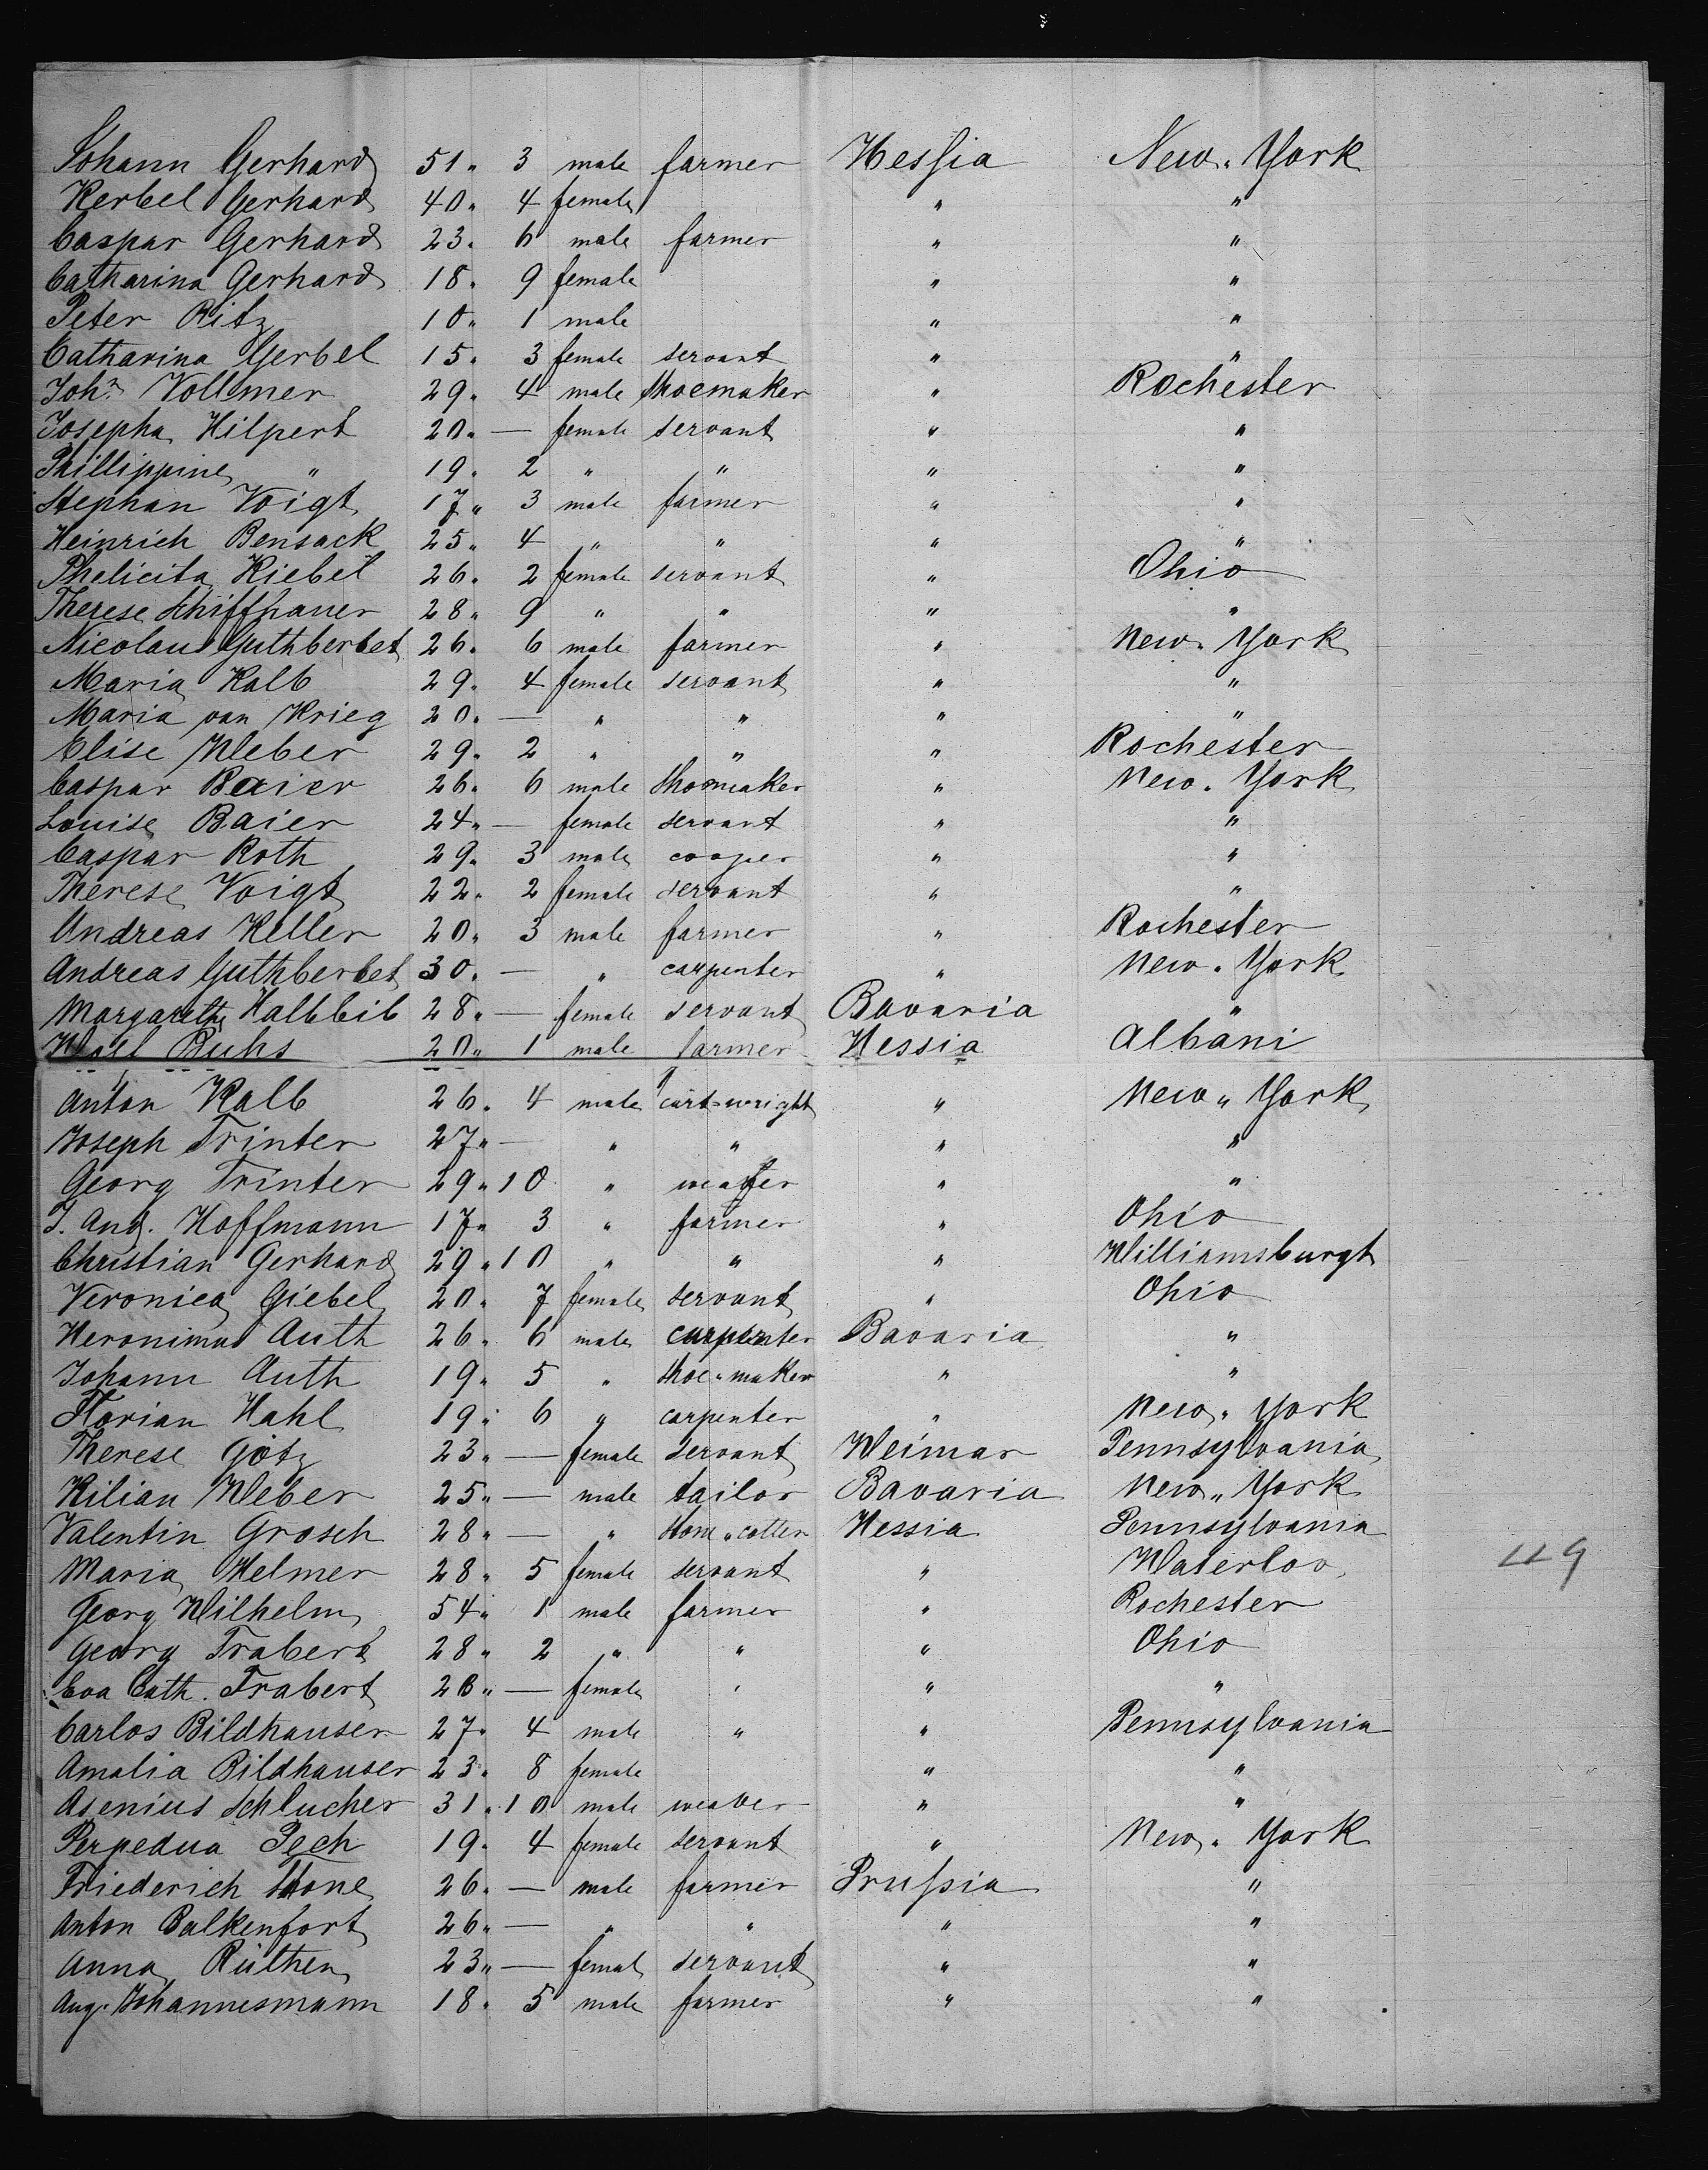 Johann Gerhard 51 " 3 male farmer Hessia New " York
Kerbel Gerhard 40 " 4 female " "
Caspar Gerhard 23 " 6 male farmer " "
Catharina Gerhard 18 " 9 female " "
Peter Ritz 10 " 1 male " "
Catharina Gerbel 15 " 3 female servant " "
Johⁿ Vollmer 29 " 4 male shoemaker " Rochester
Josepha Hilpert 20 " — female servant " "
Phillippine " 19 " 2 " " " "
Stephan Voigt 17 " 3 male farmer " "
Heinrich Bensack 25 " 4 " " " "
Phelicita Kiebel 26 " 2 female servant " Ohio
Therese 28 " 9 " " " "
Nicolaus Guthberlet 26 " 6 male farmer " New " York
Maria Kalb 29 " 4 female servant " "
Maria van Krieg 20 " — " " " "
Elise Weber 29 " 2 " " " Rochester
Caspar Baier 26 " 6 male shoemaker " New " York
Louise Baier 24 " — female servant " "
Caspar Roth 29 " 3 male cooper " "
Therese Voigt 22 " 2 female servant " "
Andreas Keller 20 " 3 male farmer " Rochester
Andreas Guthberlet 30 " — " carpenter " New " York
Margarethe Halbleib 28 " — female servant Bavaria "
20 " 1 male farmer Hessia Albani
Anton Kalb 26 " 4 male cart-wright " New " York
Joseph Trinter 27 " — " " " "
Georg Trinter 29 " 10 " weafer " "
J. And. Hoffmann 17 " 3 " farmer " Ohio
Christian Gerhard 29 " 10 " " " Williamsburgh
Veronica Giebel 20 " 7 female servant " Ohio
Heronimus Auth 26 " 6 male carpenter Bavaria "
Johann Auth 19 " 5 " shoe " maker " "
Florian Hahl 19 " 6 " carpenter " New " York
Therese Götz 23 " — female servant Weimar Pennsylvania
Kilian Weber 25 " — male tailor Bavaria New " York
Valentin Grosch 28 " — " stone " cotter Hessia Pennsylvania
Maria Helmer 28 " 5 female servant " Waterloo
Georg Wilhelm 54 " 1 male farmer " Rochester
Georg Trabert 28 " 2 " " " Ohio
Eva Cath. Trabert 28 " — female " " "
Carlos Bildhauser 27 " 4 male " " Pennsylvania
Amalia Bildhauser 23 " 8 female " "
Asenius Schlucher 31 " 10 male weaver " "
Perpedua Pech 19 " 4 female servant " New " York
Friederich 26 " — male farmer Prussia "
Anton Balkenfort 26 " — " " " "
Anna Rüther 23 " — female servant " "
Aug. Johannesmann 18 " 5 male farmer " "